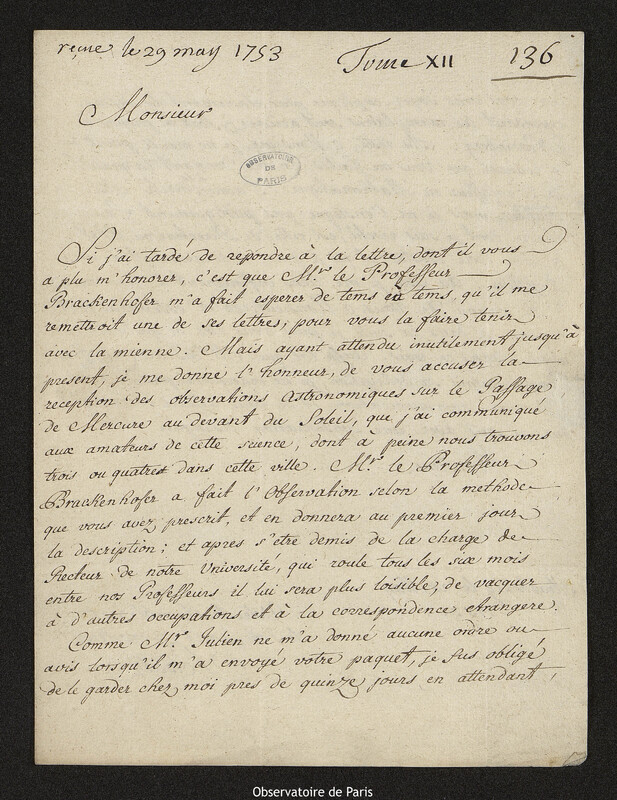 reçue le 29 may 1753
Tome XII
136
Monsieur
OBSERVATOIRE
DE
PARIS
Si j'ai tardé de repondre à la lettre, dont il vous
a plu m'honorer, c'est que Mr. le Professeur
Brackenhofer m'a fait esperer de tems en tems, qu'il me
remettroit une de ses lettres, pour vous la faire tenir
avec la mienne. Mais ayant attendu inutilement jusqu'à
present, je me donne l'honneur, de vous accuser la
reception des observations astronomiques sur le Passage
de Mercure au devant du Soleil, que j'ai communiqué
aux amateurs de cette science, dont à peine nous trouvons
trois ou quatres dans cette ville. Mr. le Professeur
Brackenhofer a fait l'Observation selon la methode
que vous avez prescrit, et en donnera au premier jour
la description; et apres s'etre demis de la charge de
Recteur de notre Université, qui roule tous les six mois
entre nos Professeurs il lui sera plus loisible, de vacquer
à d'autres occupations et à la correspondence etrangere.
Comme Mr. Julien ne m'a donné aucune ordre ou
avis lorsqu'il m'a envoyé votre paquet, je fus obligé
de le garder chez moi pres de quinze jours en attendant,
Observatoire de Paris